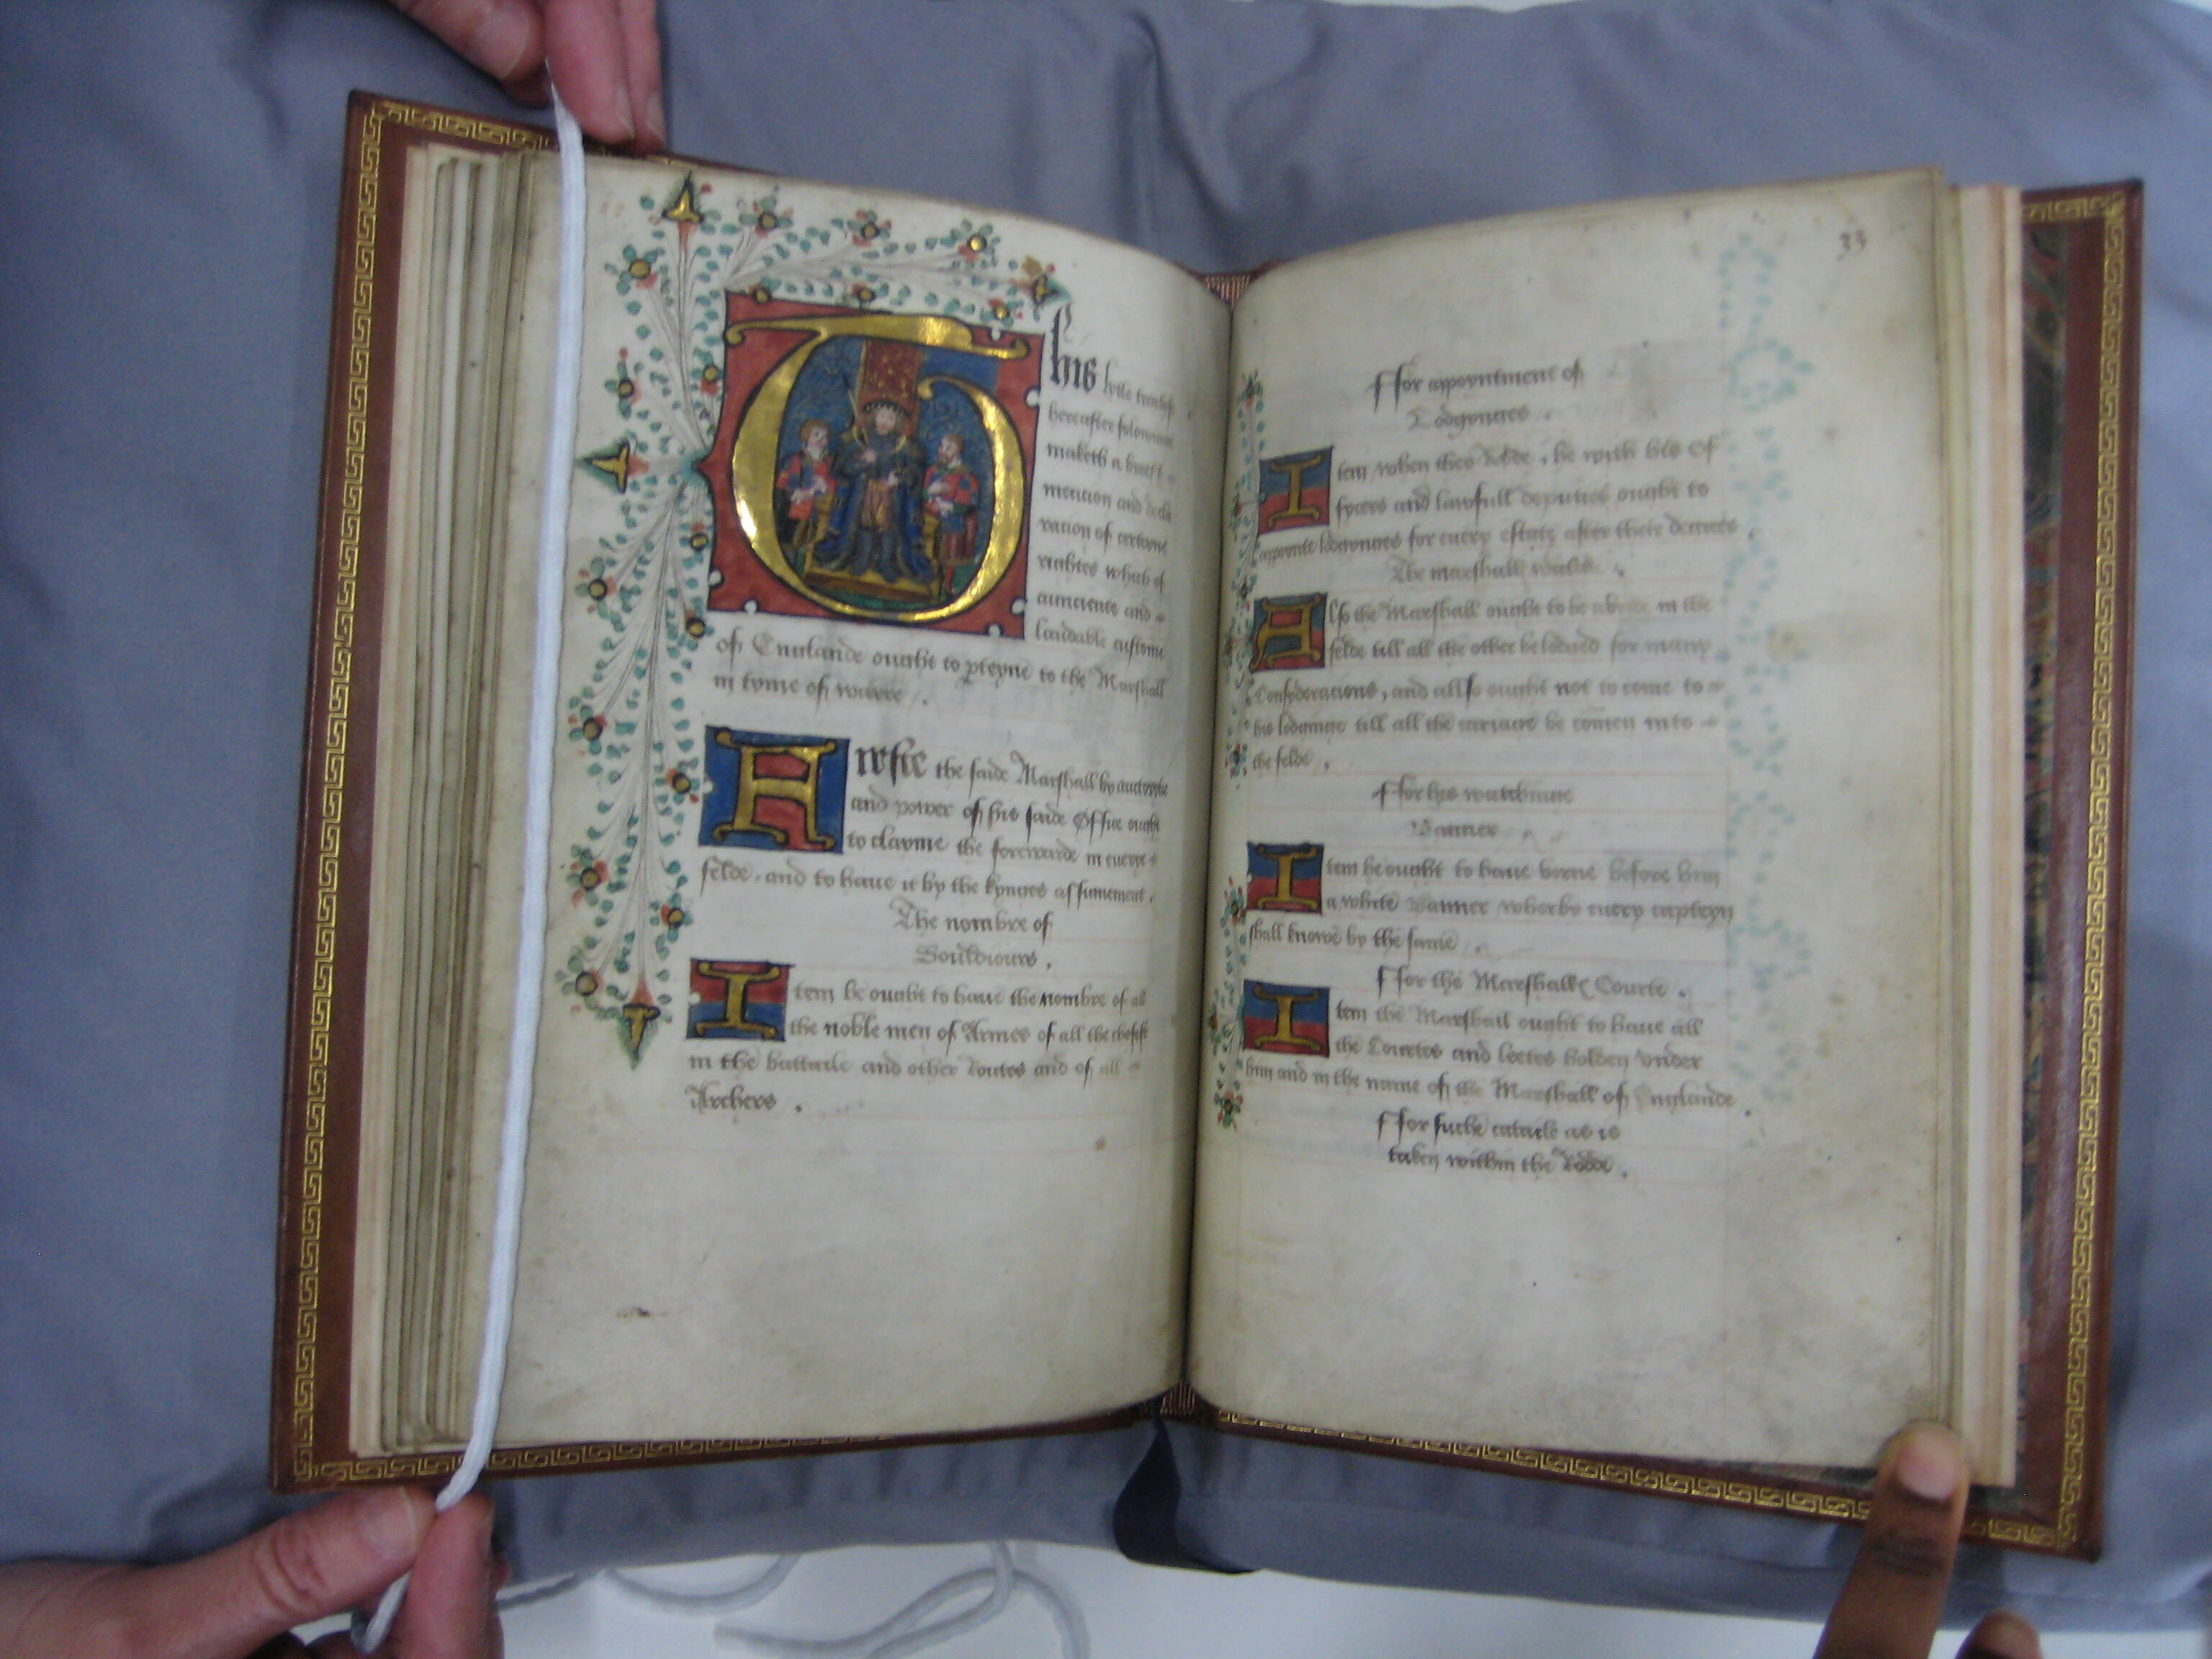 This lytle treatise
hereafter folowinge
maketh a breef
mencion and decla
racion of certayne
rightes which of
aunciente and
laudable custome
of Englande ought to pteyne to the Marshall
in tyme of warre.
Fyrste the saide Marshall by auctorytie
and power of his saide Office ought
to clayme the forewarde in euerye
felde, and to haue it by the kynges assignement.
The nombre of
Souldiours.
Item he ought to haue the nombre of all
the noble men of Armes of all the
in the battaile and other Routes and of all
Archers.
33
Ffor appoyntment of
Lodgynges.
Item when theo , he with his Of
fycers and lawfull deputies ought to
appointe lodgynges for euery estate after there degrees.
The marshall
Also the Marshall ought to be in the
felde till all the other be lodged for many
Consyderacions, and allso ought not to come to
his lodginge till all the cariage be comen into
the felde.
Ffor his watchinge
Banner
Item he ought to haue borne before him
a white Banner wherby euery capteyn
shall knowe by the same.
Ffor the Marshalles Courte.
Item the Marshall ought to haue all
the Courtes and leetes holden vnder
him and in the name of the Marshall of Englande.
Ffor suche cataile as is
taken within the